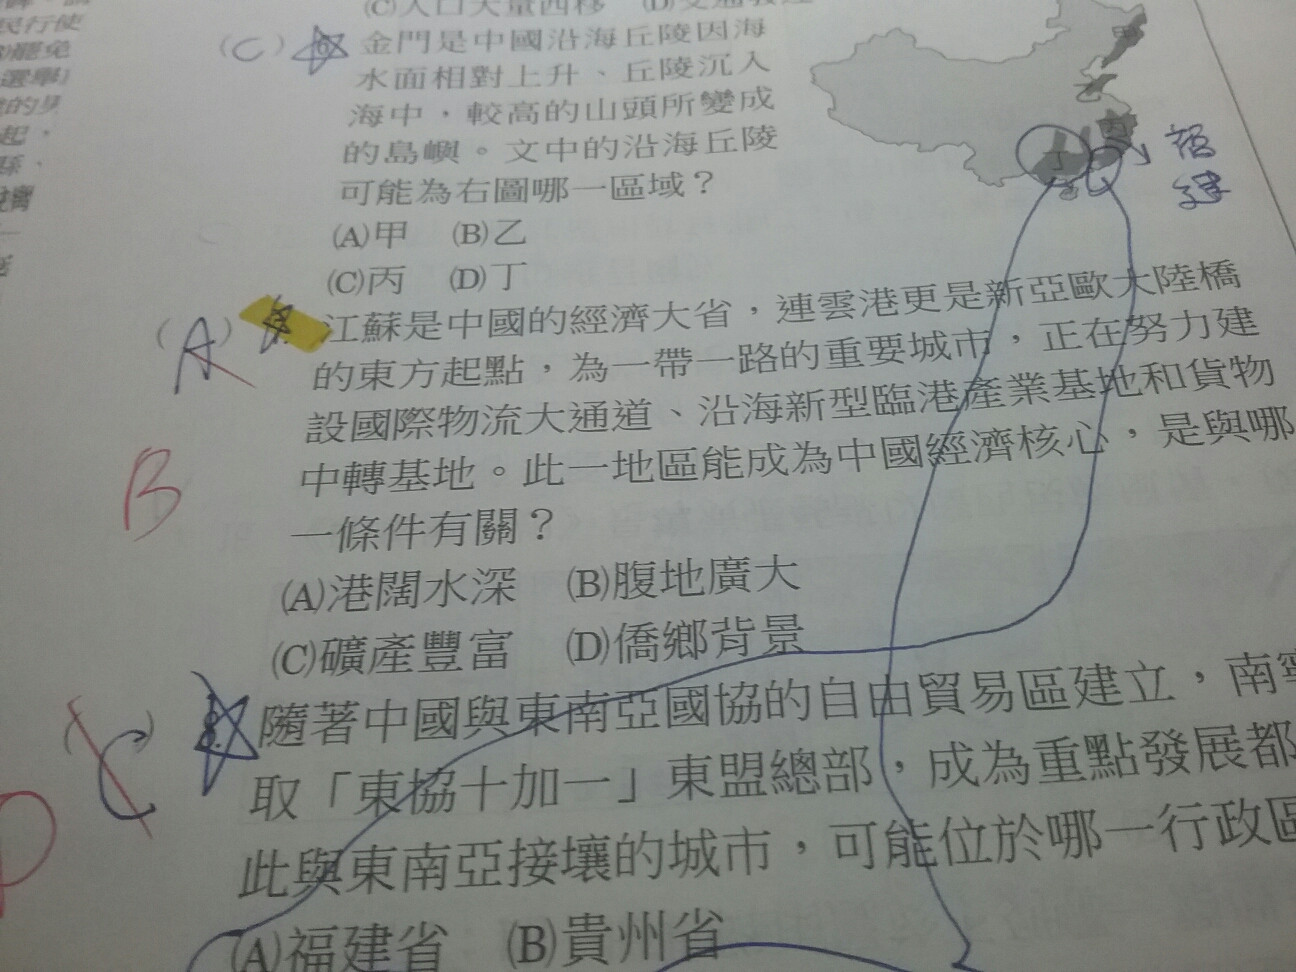 民行使
罷免
選舉)
起，
(C)人口大量西移
(C)
金門是中國沿海丘陵因海
水面相對上升、丘陵沉入
海中，較高的山頭所變成
的島嶼。文中的沿海丘陵
可能為右圖哪一區域？
(A)甲 (B)乙
(C)丙 (D)丁
甲
丙
丁
福
建
(A)
江蘇是中國的經濟大省，連雲港更是新亞歐大陸橋
的東方起點，為一帶一路的重要城市，正在努力建
設國際物流大通道、沿海新型臨港產業基地和貨物
中轉基地。此一地區能成為中國經濟核心，是與哪
一條件有關？
B
(A)港闊水深 (B)腹地廣大
(C)礦產豐富 (D)僑鄉背景
(C)
8.
隨著中國與東南亞國協的自由貿易區建立，南寧
取「東協十加一」東盟總部，成為重點發展都
此與東南亞接壤的城市，可能位於哪一行政區
(A)福建省 (B)貴州省